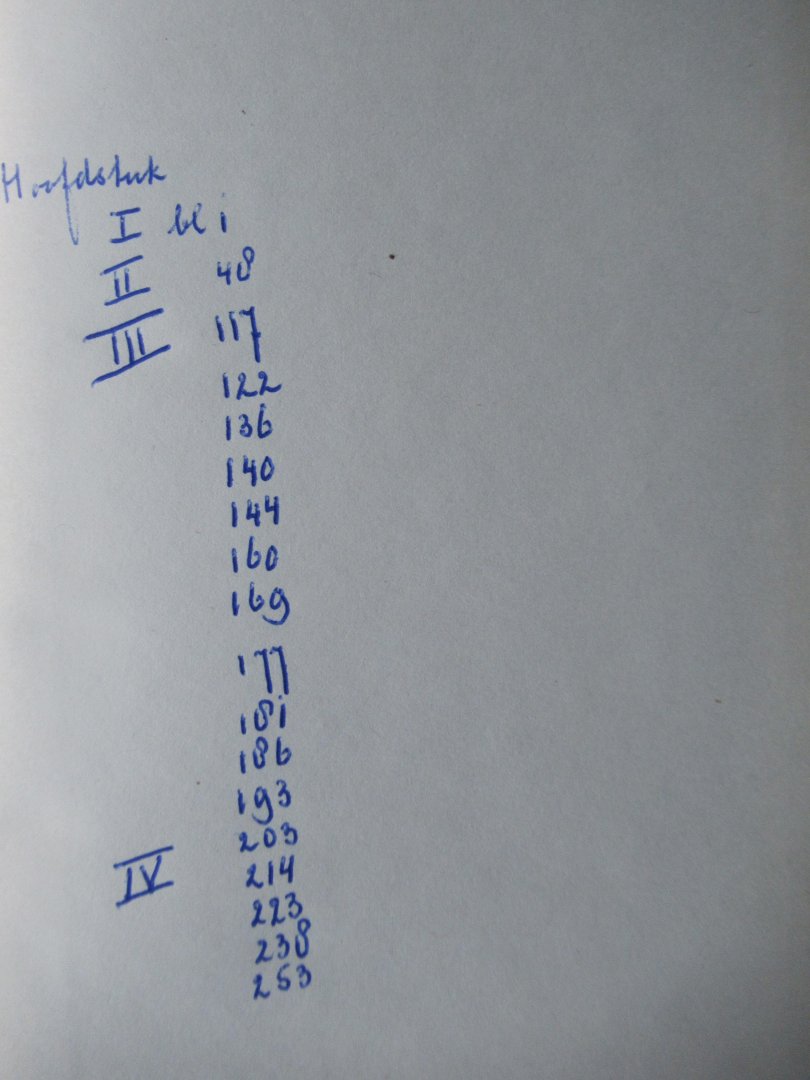 Hoofdstuk
I bl 1
II 48
III 117
122
136
140
144
160
169
177
181
186
193
203
IV 214
223
238
253